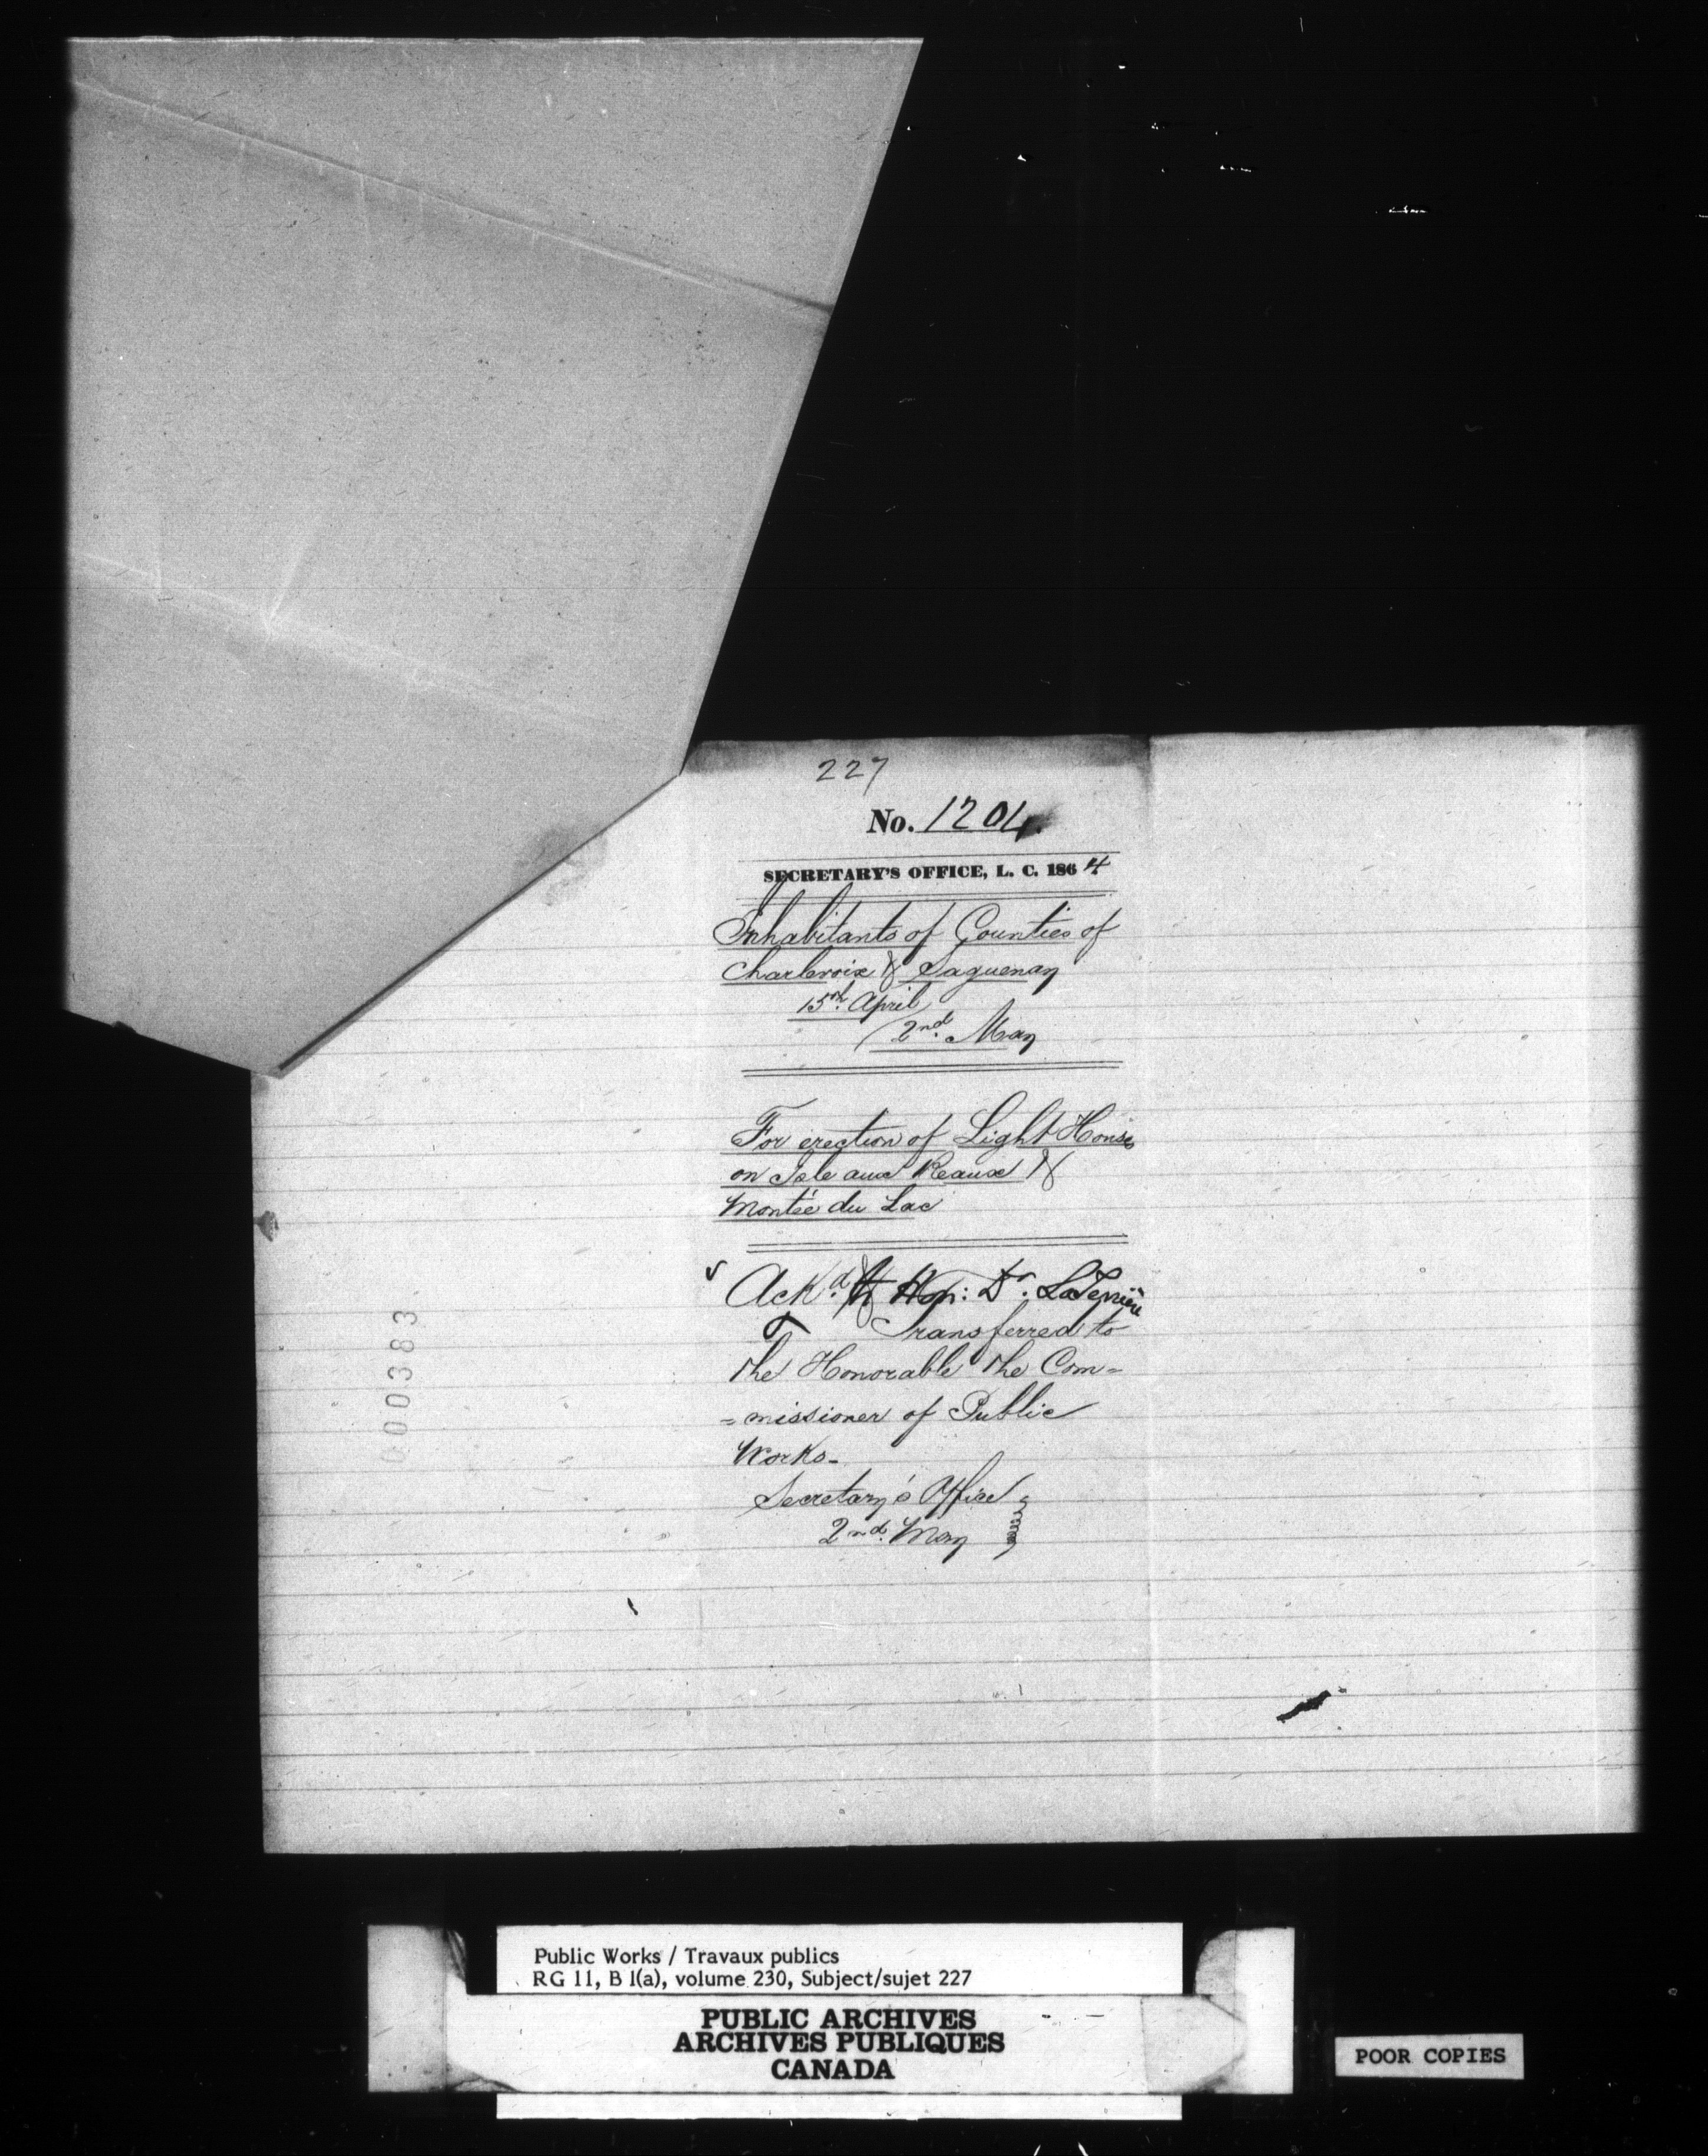 227
No. 1204.
SECRETARY'S OFFICE, L. C. 1864
Inhabitants of Counties of
Charlevoix & Saguenay
15th April
2nd May
For erection of Light House
on Isle aux Reaux &
Montée du Lac
Ackd. to Hon: Dr. LaTerrière
& Transferred to
the Honorable the Com=
=missioner of Public
Works.
Secretary's Office
2nd. May
000383
Public Works / Travaux publics
RG 11, B 1(a), volume 230, Subject/sujet 227
PUBLIC ARCHIVES
ARCHIVES PUBLIQUES
CANADA
POOR COPIES